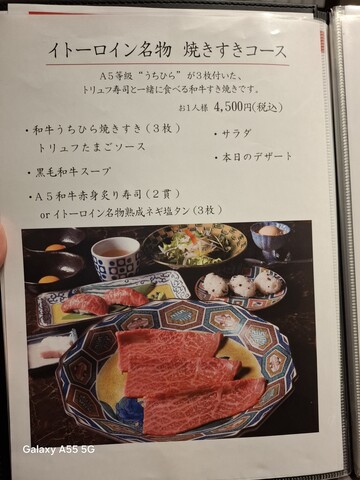 イトーロイン名物 焼きすきコース
A5等級“うちひら”が3枚付いた、
トリュフ寿司と一緒に食べる和牛すき焼きです。
お1人様 4,500円(税込)
・和牛うちひら焼きすき(3枚)
トリュフたまごソース
・黒毛和牛スープ
・A5和牛赤身炙り寿司(2貫)
orイトーロイン名物熟成ネギ塩タン(3枚)
・サラダ
・本日のデザート
Galaxy A55 5G